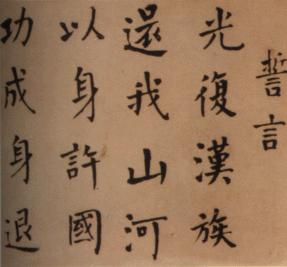 誓言
光復漢族
還我山河
以身許國
功成身退